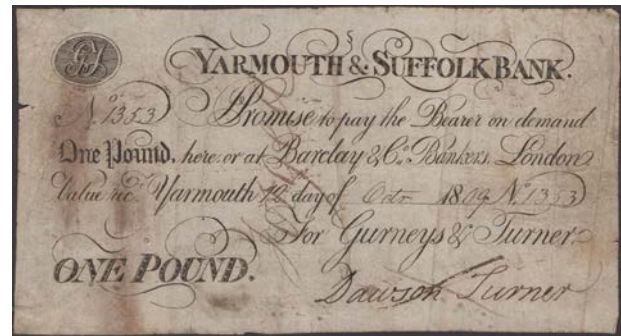 YARMOUTH & SUFFOLK BANK.
No. 1353 Promise to pay the Bearer on demand
One Pound, here or at Barclay & Co. Bankers, London
Value rec.d Yarmouth 12 day of Octr 1809 No. 1353
For Gurneys & Turner
ONE POUND.
Dawson Turner